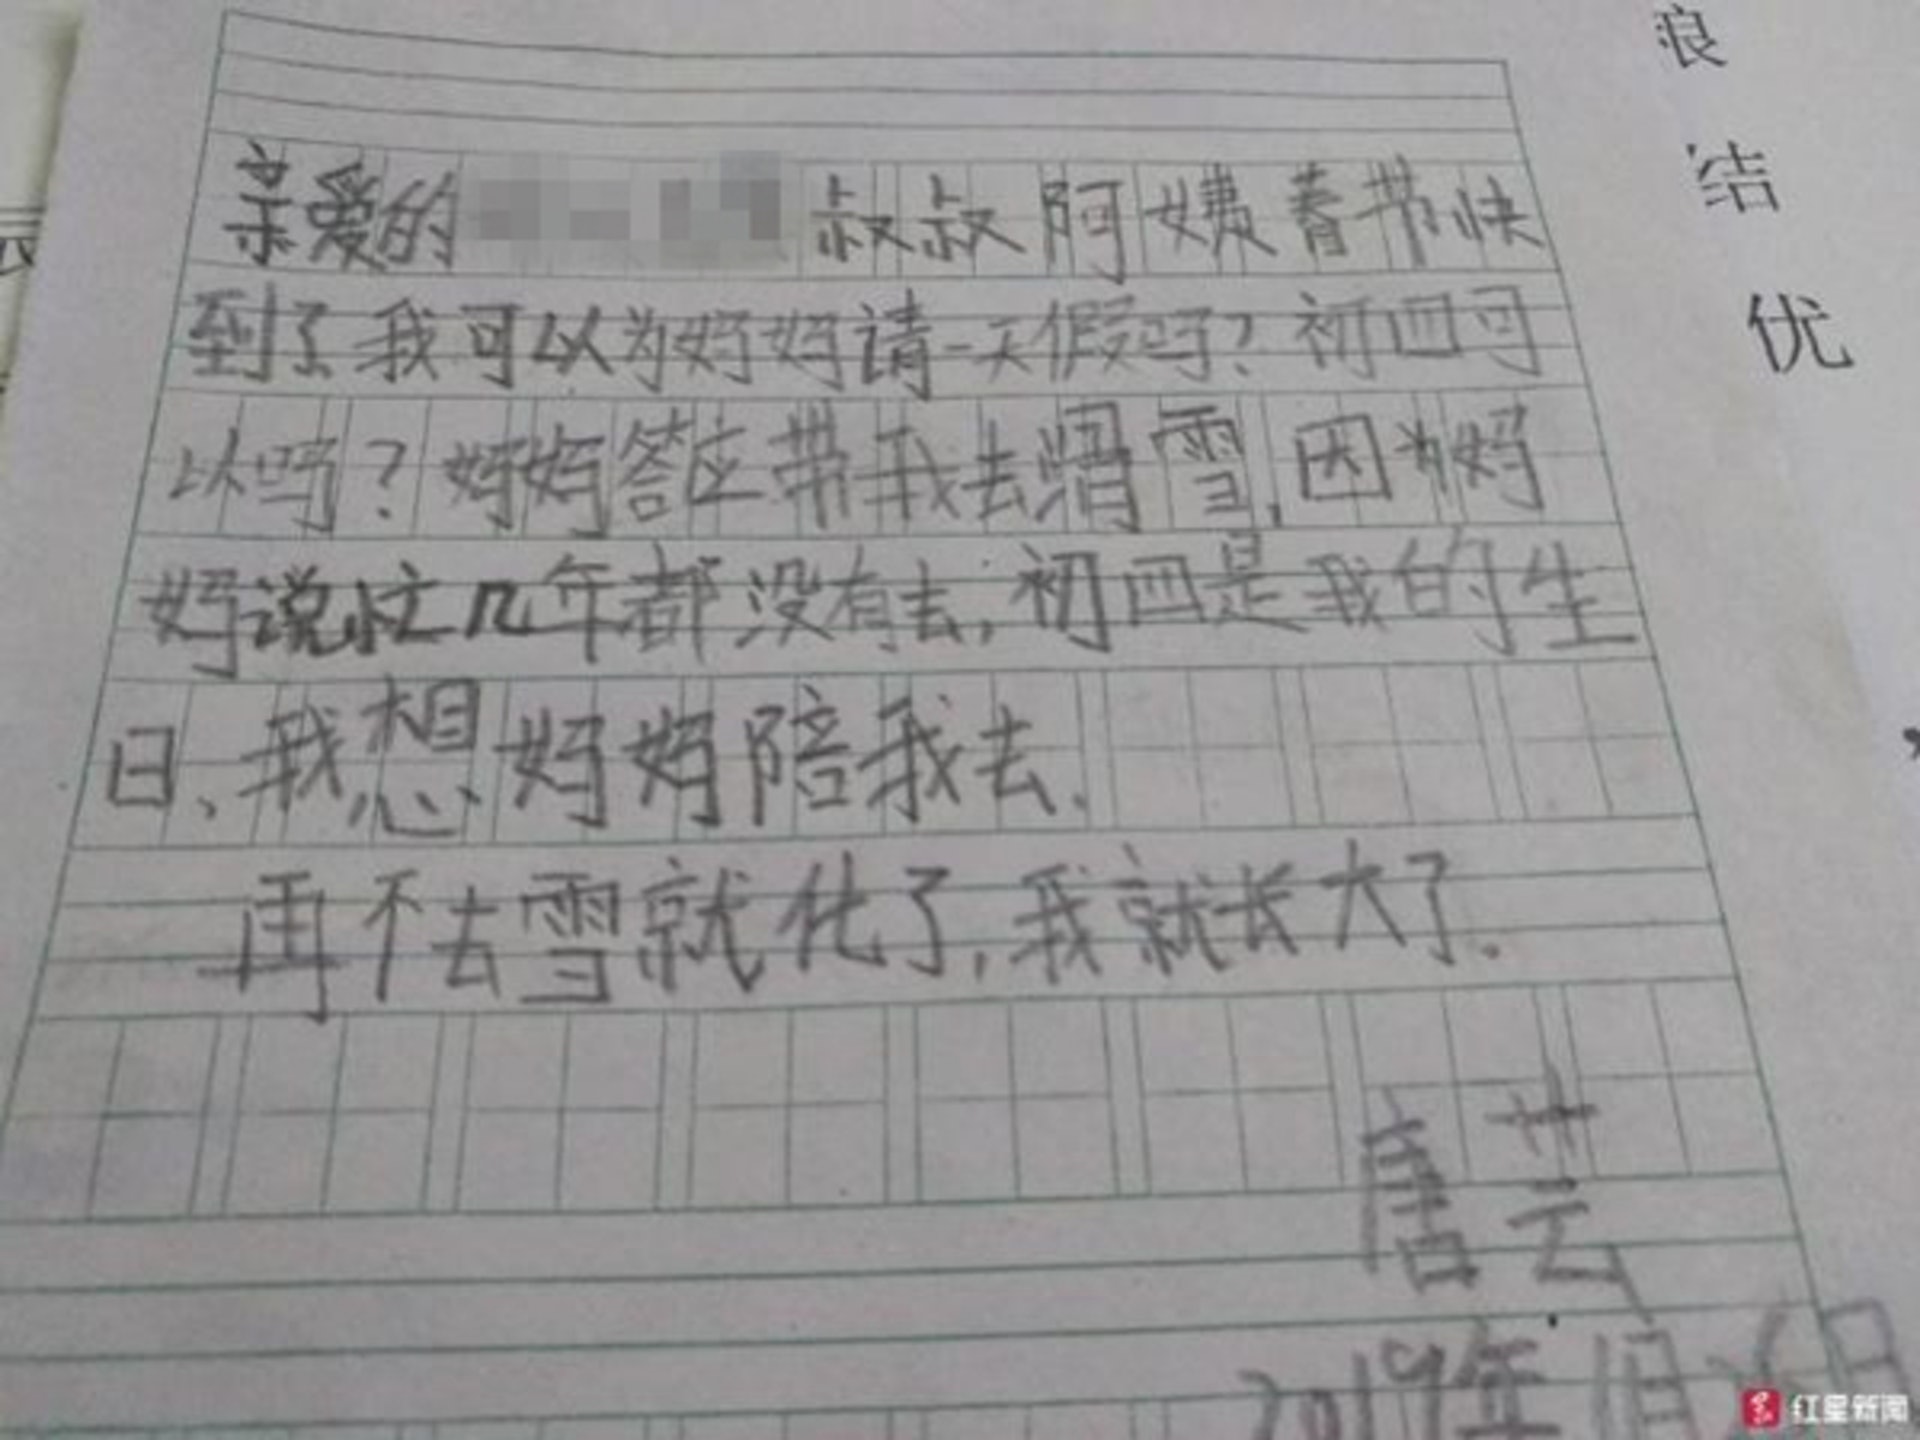 亲爱的 叔叔阿姨春节快
到了我可以为妈妈请一天假吗?初四可
以吗?妈妈答应带我去滑雪,因为妈
妈说忙几年都没有去,初四是我的生
日、我想妈妈陪我去.
再不去雪就化了,我就长大了。
唐芸
2019年1月26日
浪
结
优
红星新闻